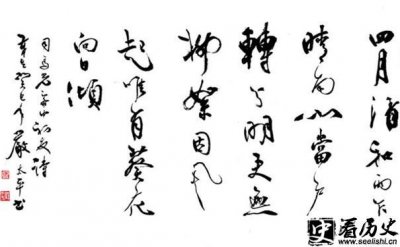 四月清和雨乍
晴南山當戶
轉分明更無
柳絮因風
起唯有葵花
向日傾
司馬光客中初夏詩
嚴太平書
看历史
www.seelishi.cn